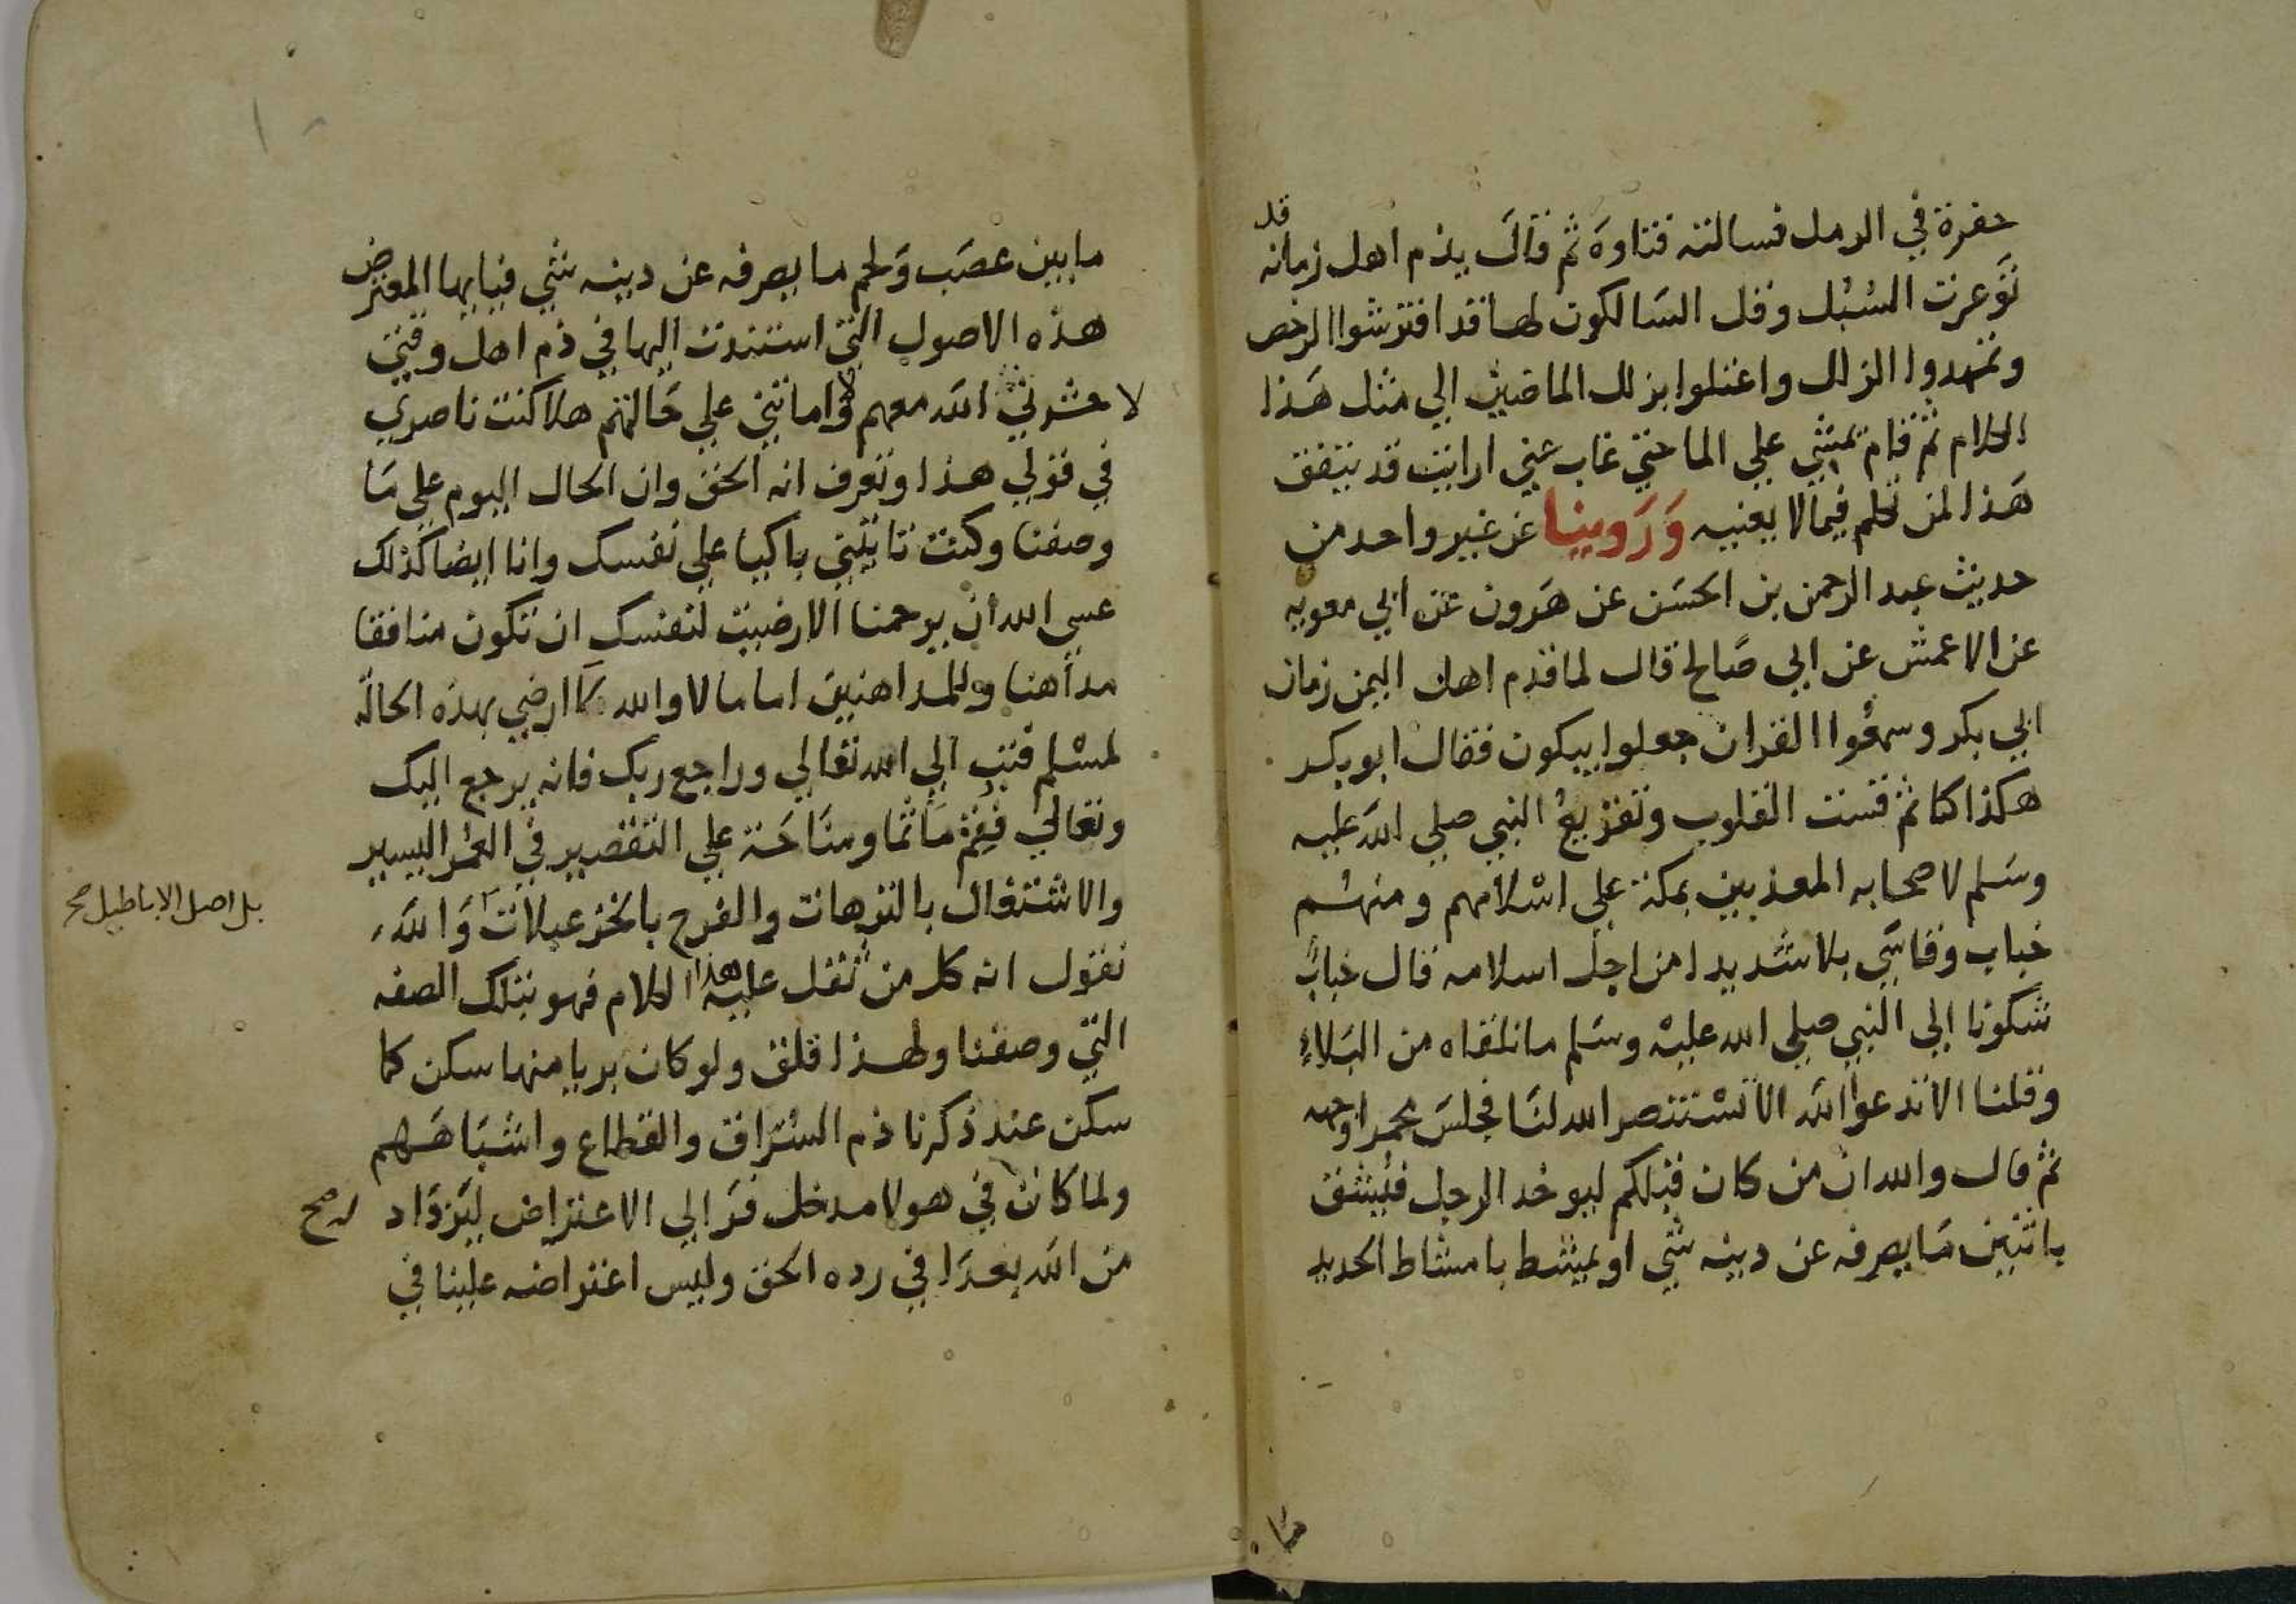 حفرة في الرمل فسالته فتاوه ثم قال يذم اهل زمانه قد
توعرت السبل وقل السالكون لها قد افترشوا الرخص
وتمهدوا الزلل واعتلوا بزلل الماضين الي مثل هذا
الكلام ثم قام يمشي علي الما حتي غاب عني ارايت قد يتفق
هذا لمن تكلم فيما لا يعنيه وروينا عن غير واحد من
حديث عبد الرحمن بن الحسن عن هرون عن ابي معويه
عن الاعمش عن ابي صالح قال لما قدم اهل اليمن زمان
ابي بكر وسمعوا القران جعلوا يبكون فقال ابو بكر
هكذا كنا ثم قست القلوب وتفزيع النبي صلي الله عليه
وسلم لاصحابه المعذبين بمكة علي اسلامهم ومنهم
خباب وقاسي بلا شديدا من اجل اسلامه قال خباب
شكونا الي النبي صلي الله عليه وسلم ما نلقاه من البلاء
وقلنا الا تدعوا الله الا تستنصر الله لنا فجلس محمرا وجهه
ثم قال والله ان من كان قبلكم ليوخذ الرجل فيشق
باثنين ما يصرفه عن دينه شي او يمشط بامشاط الحديد
ما بين عصب ولحم ما يصرفه عن دينه شي فيا ايها المعترض
هذه الاصول التي استندت اليها في ذم اهل وقتي
لا حشرني الله معهم ولا اماتني علي حالتهم هلا كنت ناصري
في قولي هذا وتعرف انه الحق وان الحال اليوم علي ما
وصفنا وكنت تاتيني باكيا علي نفسك وانا ايضا كذلك
عسي الله ان يرحمنا الا رضيت لنفسك ان تكون منافقا
مداهنا وللمداهنين اماما لا والله ما ارضي بهذه الحالة
لمسلم فتب الي الله تعالي وراجع ربك فانه يرجع اليك
وتعالي فنقم ماتما ومناحة علي التقصير في العمر اليسير
والاشتغال بالترهات والفرح بالخزعبلات والله
بل اصل الاباطيل صح
نقول انه كل من ثقل عليه هذا الكلام فهو بتلك الصفه
التي وصفنا ولهذا قلق ولو كان بريا منها سكن كما
سكن عند ذكرنا ذم السراق والقطاع واشباههم
ولما كان في هولا مدخل فر الي الاعتراض ليزداد
من الله بعدا في رده الحق وليس اعتراضه علينا في